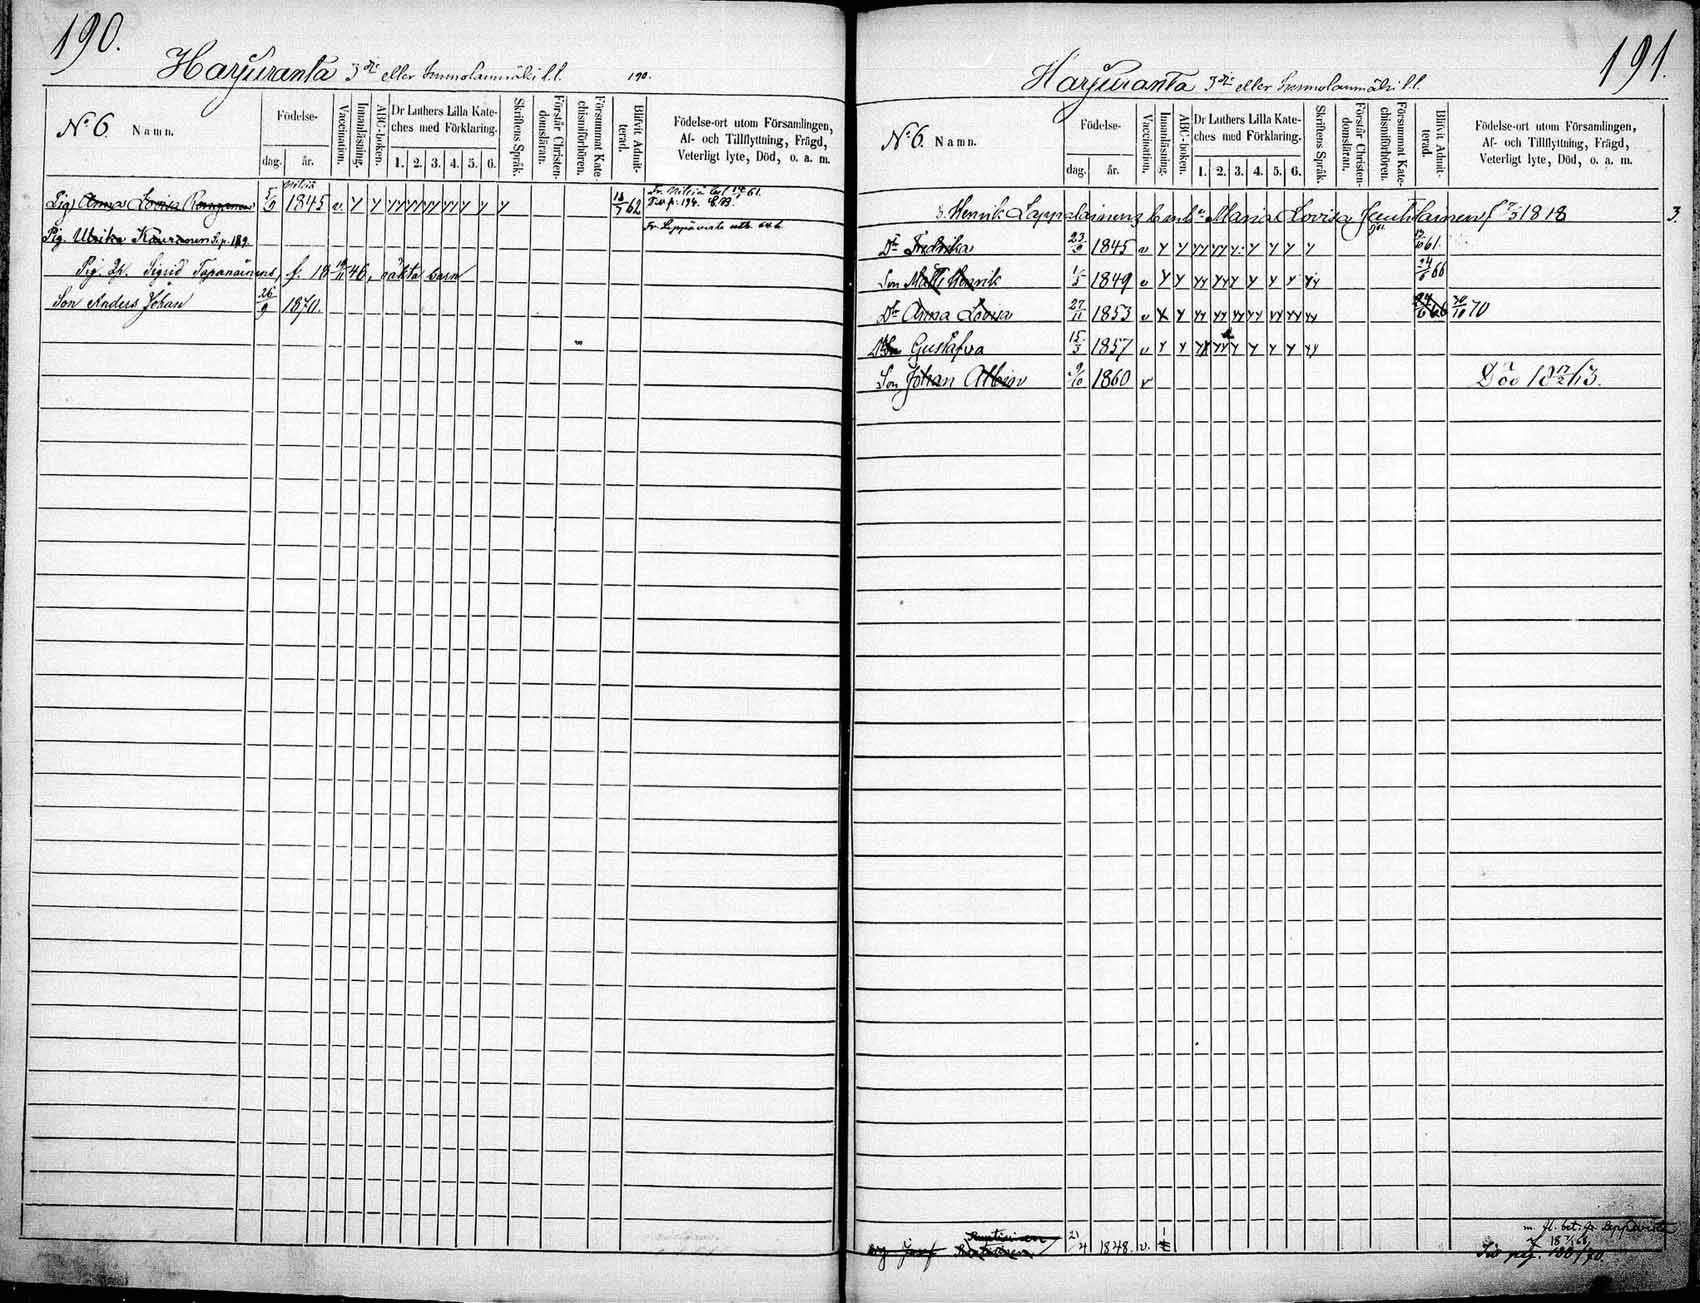 190.
Harjuranta 3ne eller Immolanmäki l.l.
190.
No 6. Namn.
Födelse-
dag. år.
Vaccination.
Innanläsning.
ABC-boken.
Dr Luthers Lilla Kate-
ches med Förklaring.
1. 2. 3. 4. 5. 6.
Skriftens Språk.
Förstår Christen-
domsläran.
Försummat Kate-
chismiförhören.
Blifvit Admit-
terad.
Födelse-ort utom Församlingen,
Af- och Tillflyttning, Frägd,
Veterligt lyte, Död, o. a. m.
Nilsiä
Pig. Anna Lovisa 5/9 1845 v. 62
Fr. Nilsiä 61.
Pig. Ulrika Kauranen Se p. 189.
Fr. Leppävirta 64
Pig. Sigrid Tapanainens, f. 18 46, oäkta barn
Son Anders Johan 26/9 1870.
191.
Harjuranta 3ne eller Immolanmäki l.l.
No 6. Namn.
Födelse-
dag. år.
Vaccination.
Innanläsning.
ABC-boken.
Dr Luthers Lilla Kate-
ches med Förklaring.
1. 2. 3. 4. 5. 6.
Skriftens Språk.
Förstår Christen-
domsläran.
Försummat Kate-
chismiförhören.
Blifvit Admit-
terad.
Födelse-ort utom Församlingen,
Af- och Tillflyttning, Frägd,
Veterligt lyte, Död, o. a. m.
Henrik Lappalainens Enka Maria Lovisa f 1818 3.
Dr Fredrika 23/9 1845 v 61.
Son Matts Henrik 1/5 1849 v 24/6 66
Dr Anna Lovisa 27/11 1853 v 24/6 66 30/10 70
Dr Gustafva 15/3 1857 v
Son Johan Albin 9/10 1860 v Död 18 12/2 63.
Josef 21/4 1848. v.
m. fl. bet. fr. Leppävirta
Se pag. 188/70.